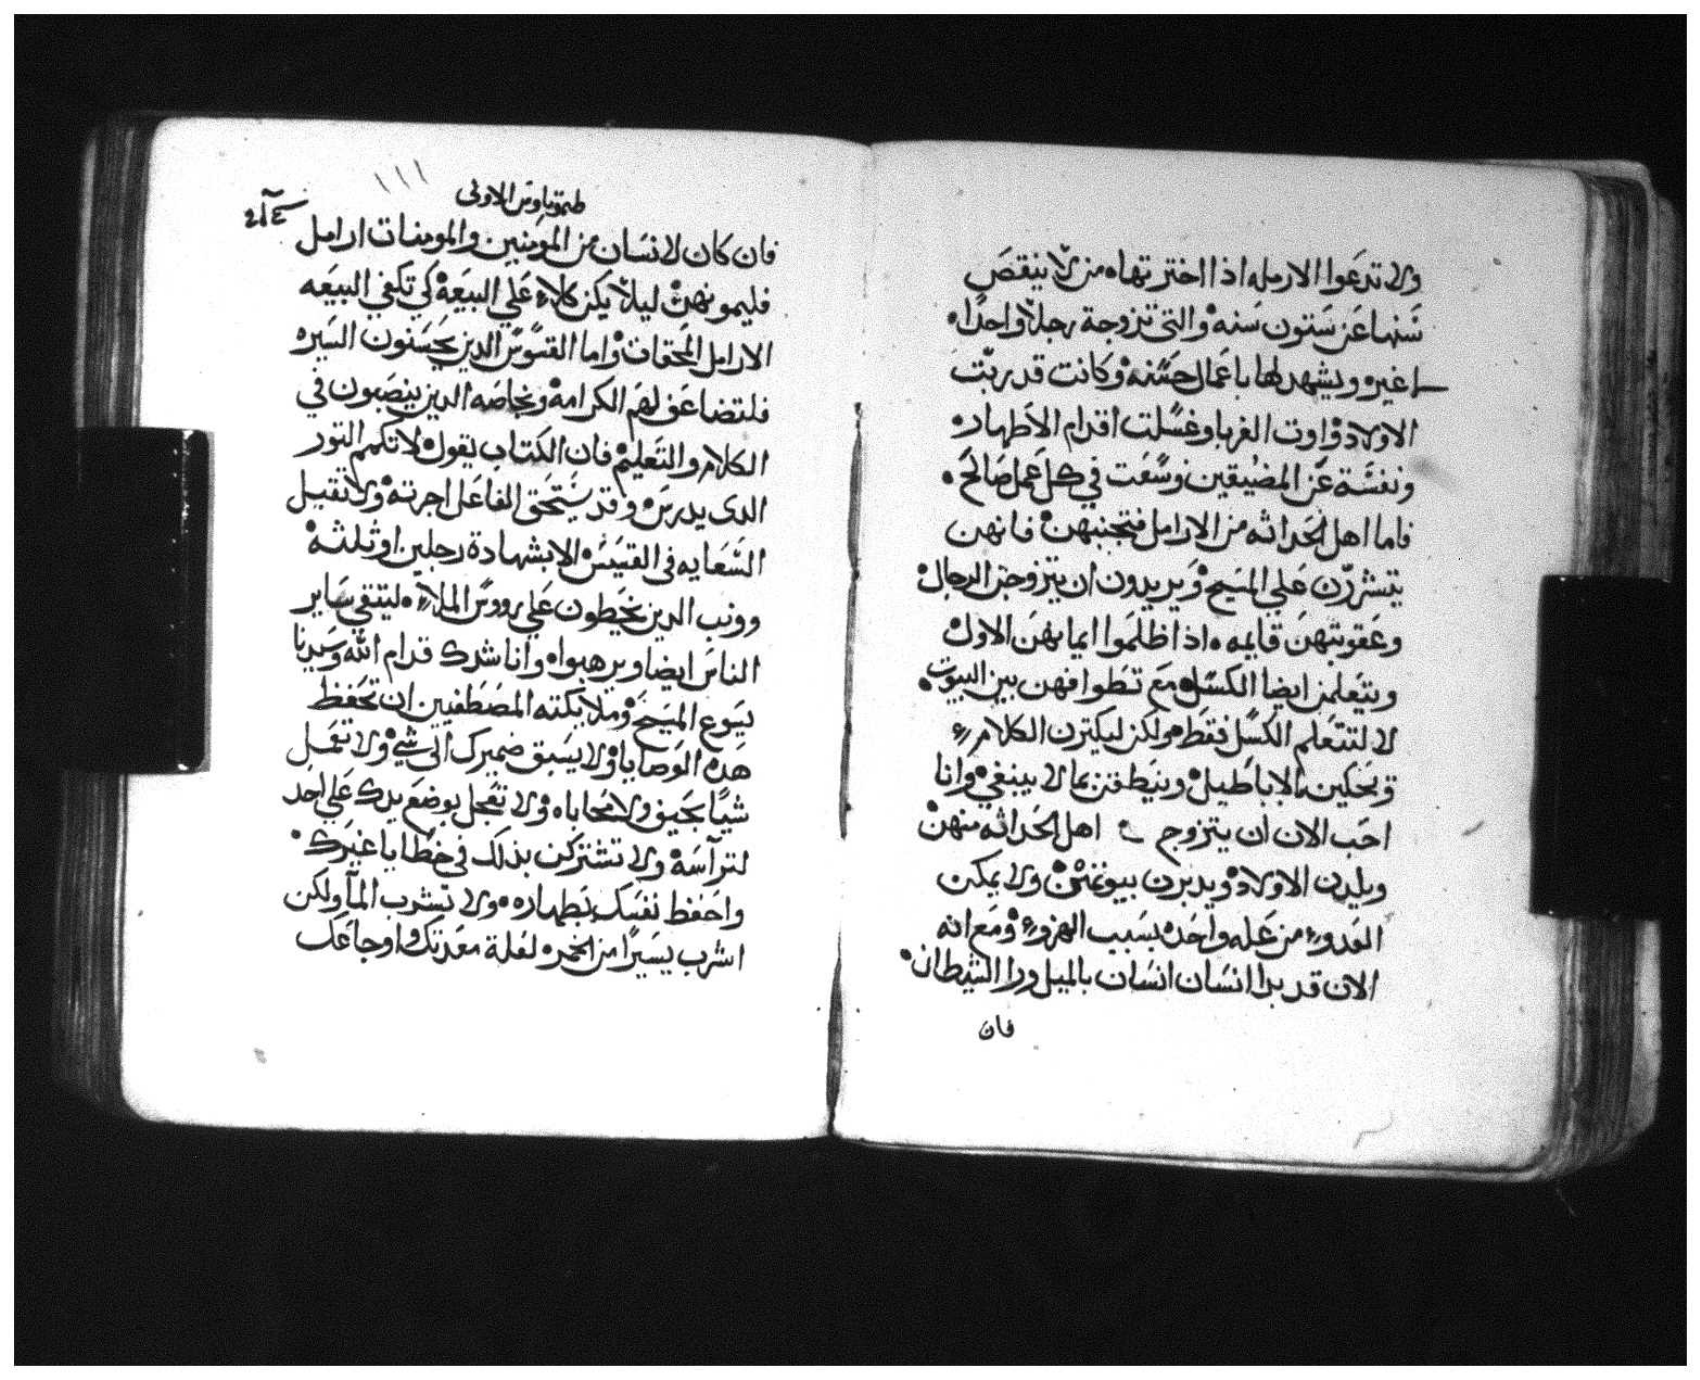 ولا تدعوا الارمله اذا اخترتهاه من لا ينقص
سنها عن ستون سنه والتي تزوجة رجلاً واحدًا
غيره ويشهد لها باعمال حسنه وكانت قد ربّت
الاولاد واوت الغربا وغسلت اقدام الاطهار
ونفسَّة عن المضيقين وسعَت في كل عمل صالح
فاما اهل الحداثه من الارامل فتجنبهن فانهن
يتشررّن علي المسيح ويريدون ان يتزوجن الرجال
وعقوبتهن قايمه اذا ظلموا ايمانهن الاول
ويتعلمن ايضا الكسل مع تطوافهن بين البيوت
لا لتتعلم الكسل فقط ولكن ليكثرن الكلام
وتحكين الاباطيل وينطقن بما لا ينبغي وانا
احب الان ان يتزوج اهل الحداثه منهن
ويلدن الاولاد ويدبرن بيوتهن ولا يمكن
العدو من عله واحده بسبب الهزو ومع انه
الان قد بدا انسان انسان بالميل ورا الشيطان
فان
طيموتاوس الاولى
فان كان لانسان من المومنين والمومنات ارامل
فليمونهن ليلا يكن كلاً علي البيعه كي تكفي البيعه
الارامل المحقات واما القسوس الدين يحسنون السيره
فلتضاعف لهم الكرامه وبخاصه الدين ينصبون في
الكلام والتعليم فان الكتاب يقول لا تكمم التور
الدى يدرس وقد يستحق الفاعل اجرته ولا تقبل
السعايه فى القسيس الا بشهادة رجلين او ثلثه
وونب الدين يخطون علي رووس الملاء ليتقي ساير
الناس ايضا ويرهبوا وانا شدك قدام الله وسيدنا
يسوع المسيح وملايكته المصطفين ان تحفظ
هده الوصايا ولا يسبق ضميرك الى شي ولا تعمل
شيًا بحيف ولا محاباه ولا تعجل بوضع يدك علي احد
لترآسه ولا تشتركن بذلك في خطايا غيرك
واحفظ نفسك بطهاره ولا تشرب المآ ولكن
اشرب يسيرًا من الخمر لعلة معدتك واوجاعك